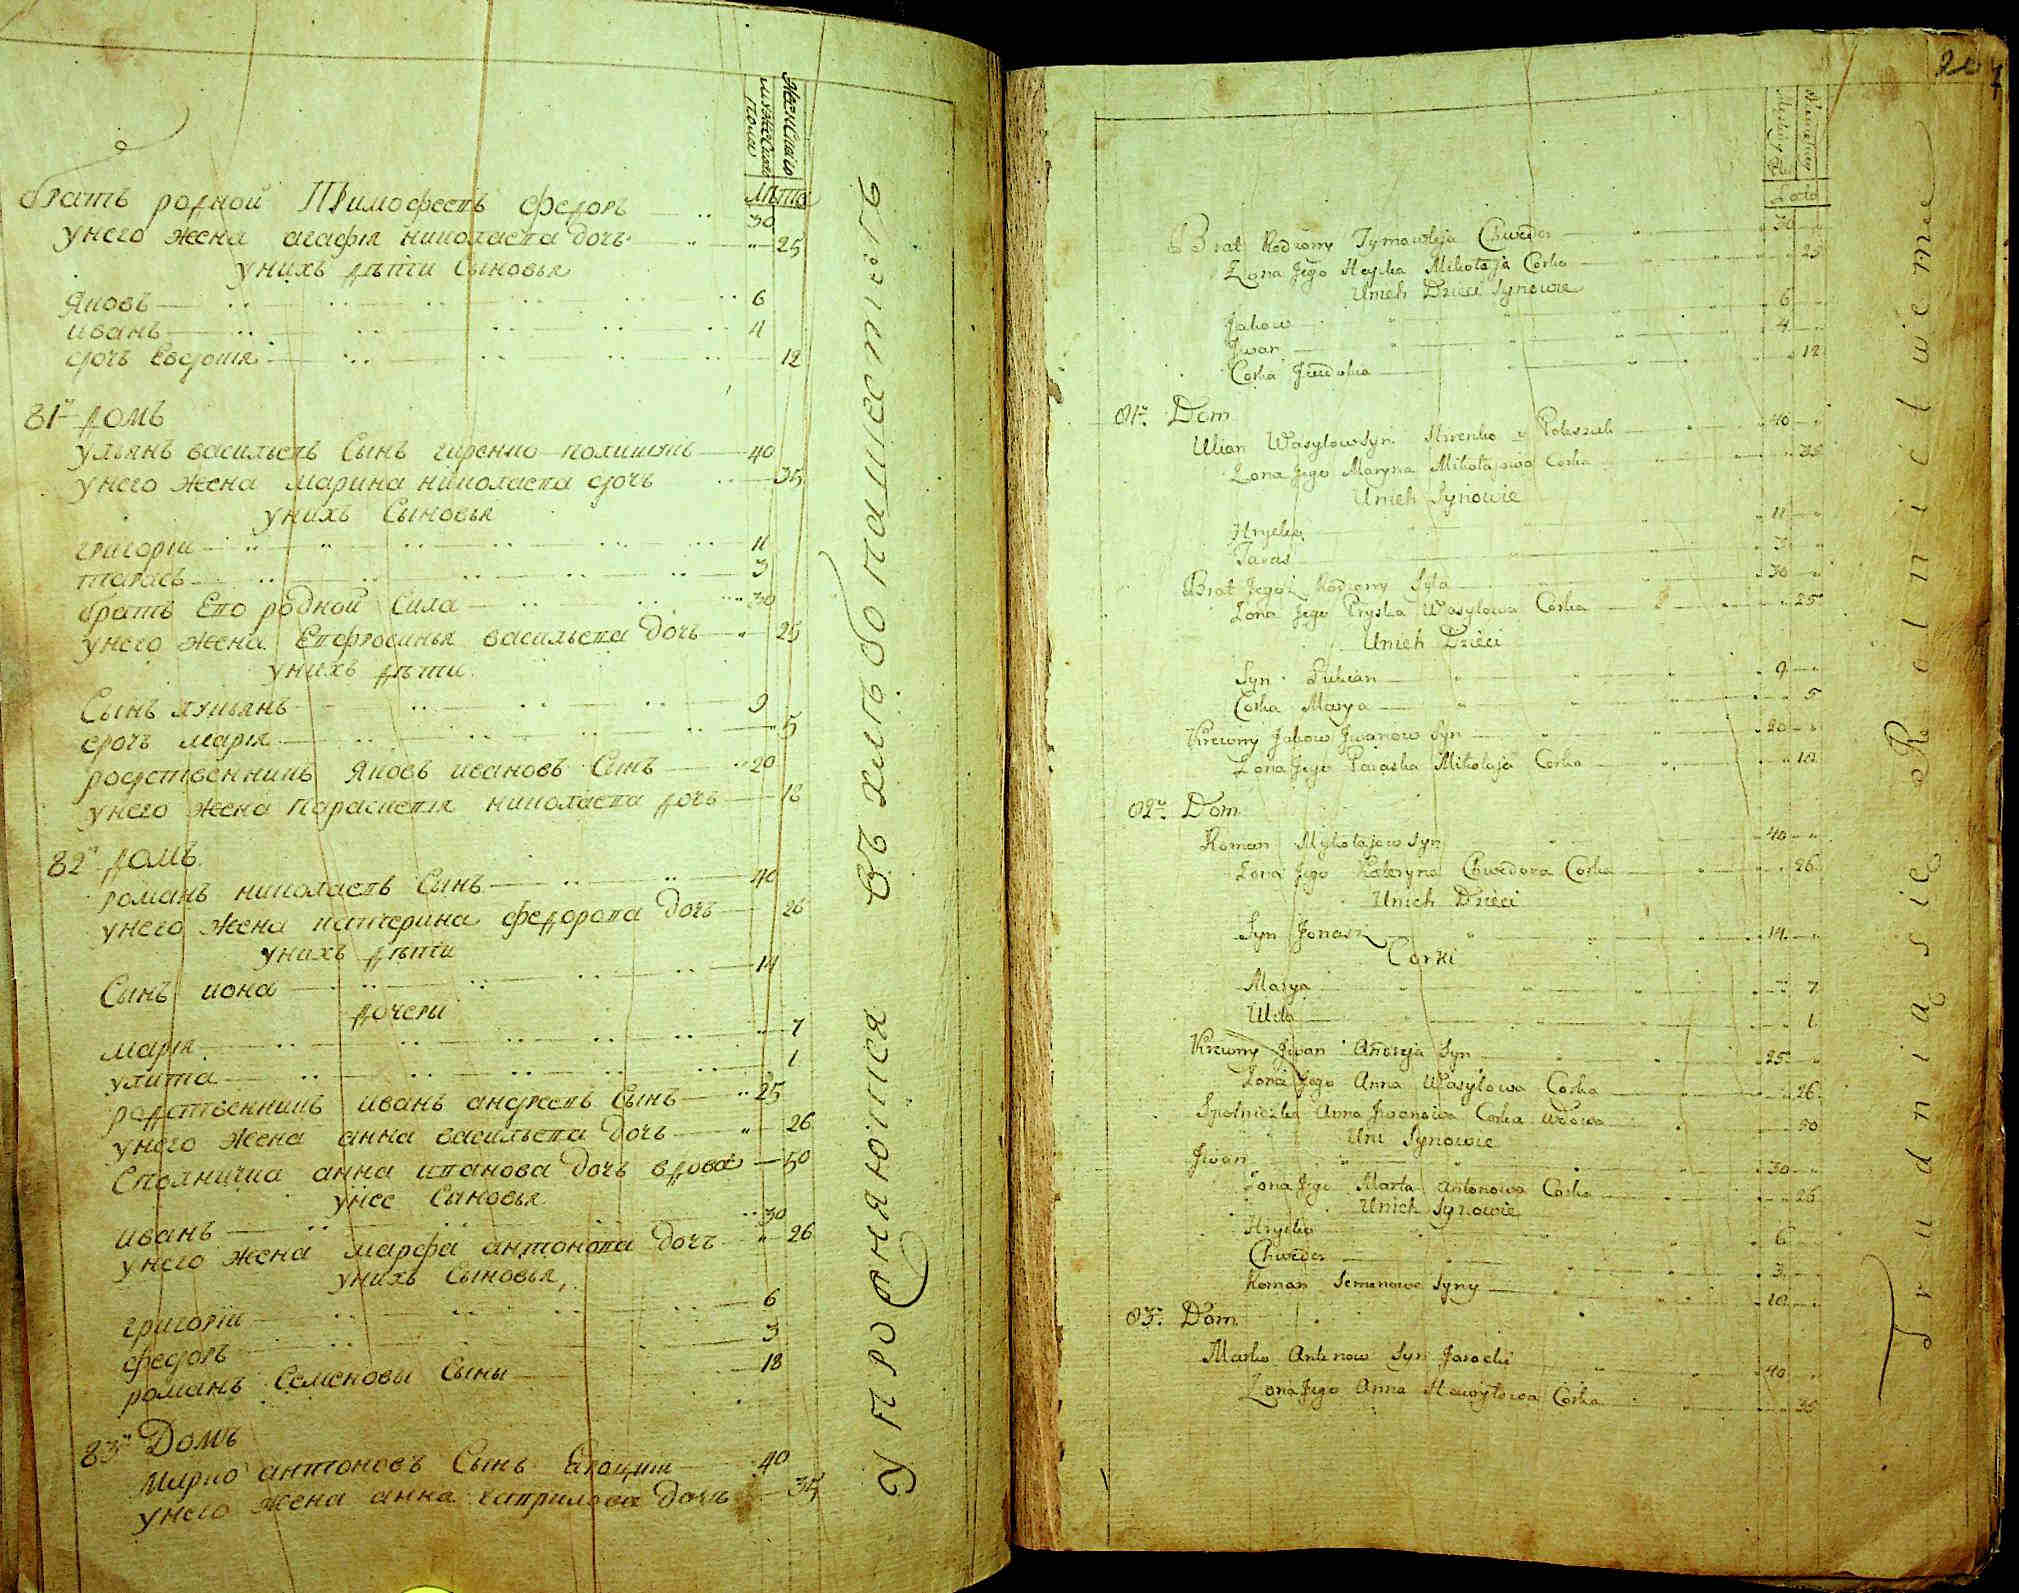 женскаго
мужескаго
пола
лѣта
братъ родной Тимофеевъ федоръ 30
унего жена агафія николаева дочь 25
унихъ дѣти Сыновья
яковъ 6
иванъ 4
дочь Евдокія 12
81й домъ
ульянъ васильевъ Сынъ гиренко полишукъ 40
унего жена марина николаева дочь 35
унихъ Сыновья
григорій 11
тарасъ 3
братъ Его родной Сила 30
унего жена Ефросинья васильева дочь 25
унихъ дѣти
Сынъ лукьянъ 9
дочь марія 5
родственникъ яковъ ивановъ Сынъ 20
унего жена параскевія николаева дочь 18
82й домъ
романъ николаевъ Сынъ 40
унего жена катерина федорова дочь 26
унихъ дѣти
Сынъ иона 14
дочери
марія 7
улита 1
родственникъ иванъ андреевъ Сынъ 25
унего жена анна васильева дочь 26
Сполничка анна иванова дочь вдова 50
унее Сыновья
иванъ 30
унего жена марфа антонова дочь 26
унихъ Сыновья
григорій 6
федоръ 3
романъ Семеновы Сыны 18
83й Домъ
Марко антоновъ Сынъ 40
унего жена анна гаврилова дочь 35
упражняются въ хлѣбопашествѣ
Lata
Brat Rodzony Tymowieja Chwedor 30
Zona Jego Heyka Mikołaja Corka 25
Unich Dzieci Synowie
Jakow 6
Jwan 4
Corka Jewdokia 12
81. Dom
Ulian Wasylow Syn Hirenko y Poleszuk 40
Zona Jego Maryna Mikołajowa Corka 35
Unich Synowie
Hryćko 11
Taras 3
Brat Jego Rodzony Syla 30
Zona Jego Pryska Wasylowa Corka 25
Unich Dzieci
Syn Łukian 9
Corka Marya 5
Krewny Jakow Jwanow Syn 20
Zona Jego Paraska Mikołaja Corka 18
82. Dom
Roman Mykołajow Syn 40
Zona Jego Kateryna Chwedora Corka 26
Unich Dzieci
Syn Jonasz 14
Corki
Marya 7
Ulita 1
Krewny Jwan Andreja Syn 25
Zona Jego Anna Wasylowa Corka 26
Społniczka Anna Jwanowa Corka Wdowa 50
Uni Synowie
Jwan 30
Zona Jego Marta Antonowa Corka 26
Unich Synowie
Hryćko 6
Chwedor 3
Roman Semenowe Syny 18
83. Dom
Marko Antonow Syn Jarocki 40
Zona Jego Anna Hawryłowa Corka 35
Trudnią się Rolnictwiem